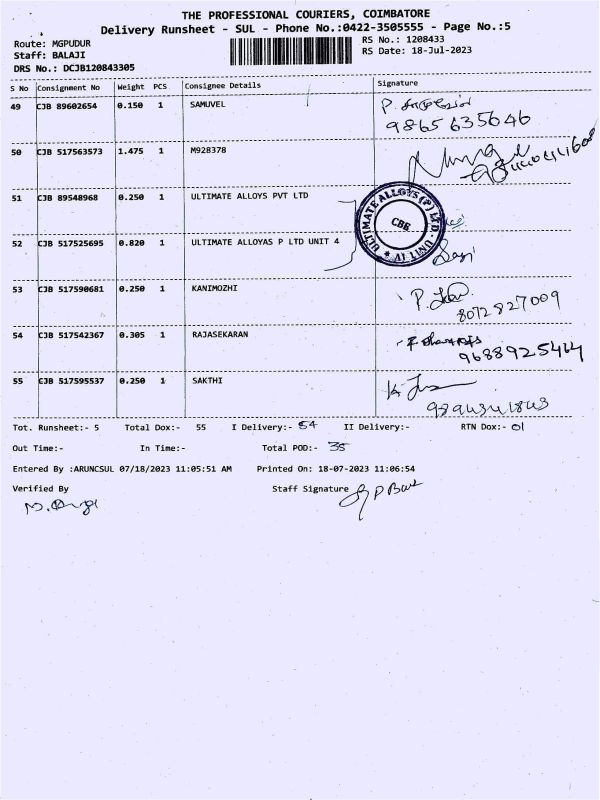 THE PROFESSIONAL COURIERS, COIMBATORE
Delivery Runsheet - SUL - Phone No.:0422-3505555 - Page No.:5
Route: MGPUDUR
RS No.: 1208433
Staff: BALAJI
RS Date: 18-Jul-2023
DRS No.: DCJB120843305
S No Consignment No Weight PCS Consignee Details Signature
49 CJB 89602654 0.150 1 SAMUVEL
9865635646
50 CJB 517563573 1.475 1 M928378
51 CJB 89548968 0.250 1 ULTIMATE ALLOYS PVT LTD
ULTIMATE ALLOYS (P) LTD. UNIT VI A
CBE
52 CJB 517525695 0.820 1 ULTIMATE ALLOYAS P LTD UNIT 4
53 CJB 517590681 0.250 1 KANIMOZHI
8072827009
54 CJB 517542367 0.305 1 RAJASEKARAN
9688925464
55 CJB 517595537 0.250 1 SAKTHI
Tot. Runsheet:- 5 Total Dox:- 55 I Delivery:- 54 II Delivery:- RTN Dox:- 01
Out Time:- In Time:- Total POD:- 35
Entered By :ARUNCSUL 07/18/2023 11:05:51 AM Printed On: 18-07-2023 11:06:54
Verified By Staff Signature